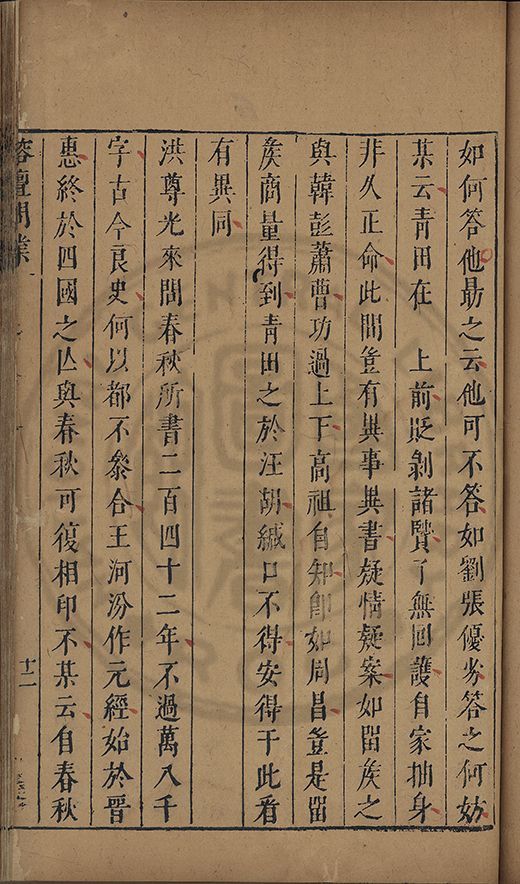 如何答他勗之云他可不答如劉張優劣答之何妨
某云青田在　上前貶剝諸賢了無回護自家抽身
非久正命此間豈有異事異書疑情疑案如留矦之
與韓彭蕭曹功過上下高祖自知卽如周昌豈是留
矦商量得到青田之於汪胡緘口不得安得于此看
有異同
洪尊光來問春秋所書二百四十二年不過萬八千
字古今良史何以都不叅合王河汾作元經始於晉
惠終於四國之亾與春秋可復相印不某云自春秋
榕壇問業
十二